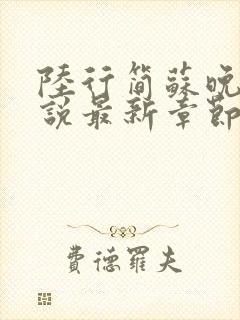 陸行简蘇晚
說最新章節
費德羅夫